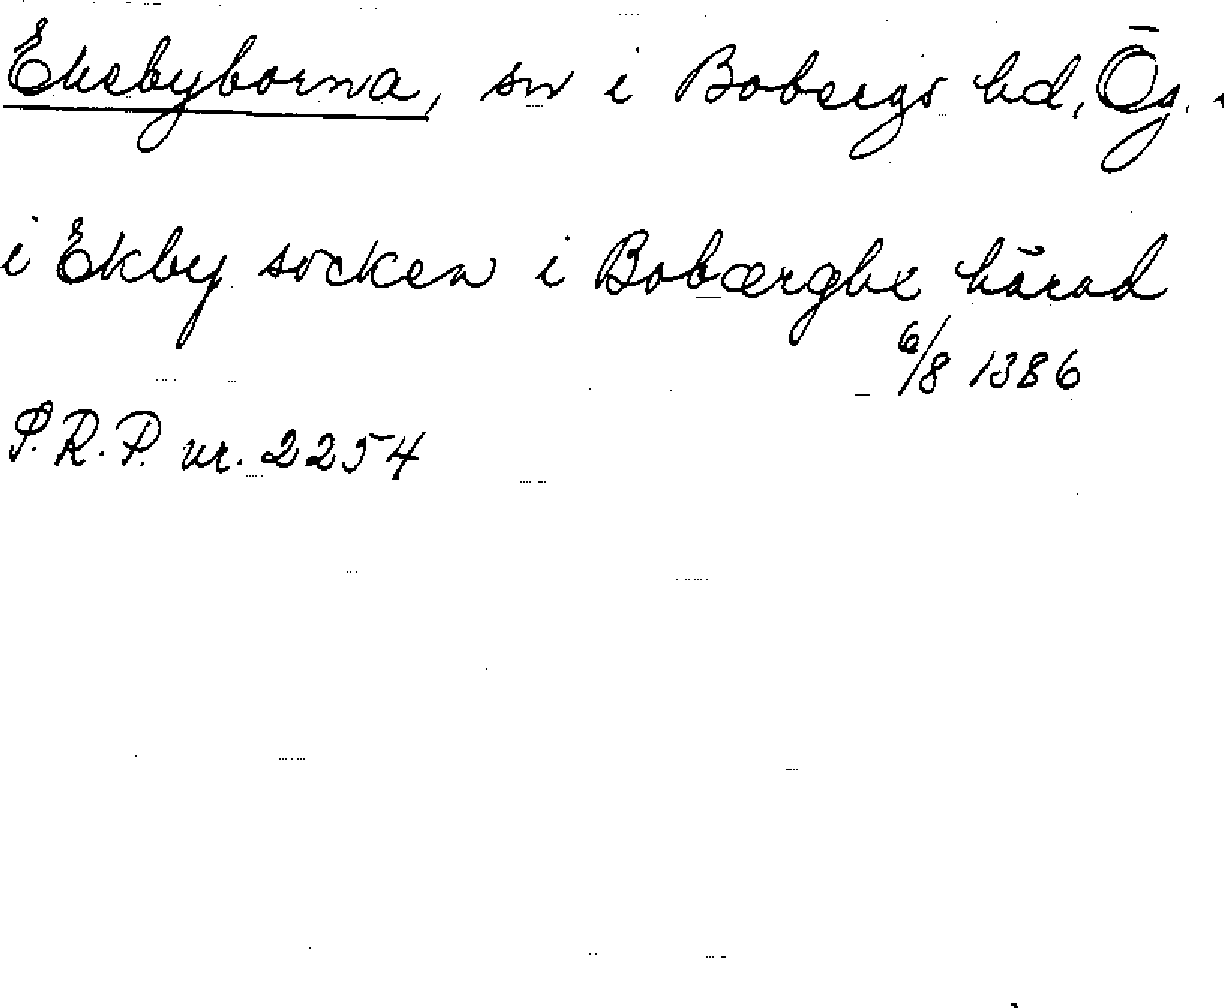 Ekebyborna, sn i Bobergs hd, Ög.
i Ekby socken i Bobærghe härad
6/8 1386
S.R.P. nr. 2254